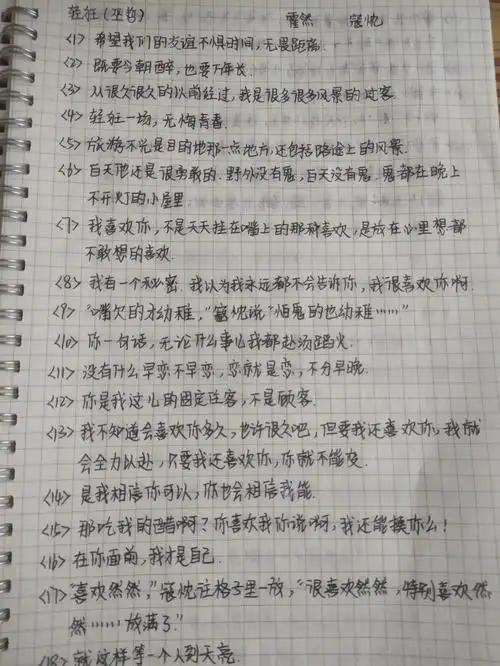 轻狂(巫哲) 霍然 寇忱
<1> 希望我们的友谊不惧时间,无畏距离.
<2> 既要今朝醉,也要万年长.
<3> 从很久很久的以前经过,我是很多很多风景的过客.
<4> 轻狂一场,无悔青春.
<5> 旅游不光是目的地那一点地方,还包括路途上的风景.
<6> 白天他还是很勇敢的.野外没有鬼,白天没有鬼.鬼都在晚上
不开灯的小屋里.
<7> 我喜欢你,不是天天挂在嘴上的那种喜欢,是放在心里想都
不敢想的喜欢.
<8> 我有一个秘密.我以为我永远都不会告诉你,我很喜欢你啊.
<9> "嘴欠的才幼稚,"寇忱说"怕鬼的也幼稚……"
<10> 你一句话,无论什么事儿我都赴汤蹈火.
<11> 没有什么早恋不早恋,恋就是恋,不分早晚.
<12> 你是我这儿的固定住客,不是顾客.
<13> 我不知道会喜欢你多久,也许很久吧,但要我还喜欢你,我就
会全力以赴,只要我还喜欢你,你就不能变.
<14> 是我相信你可以,你也会相信我能.
<15> 那吃我的醋啊?你喜欢我你说啊,我还能揍你么!
<16> 在你面前,我才是自己.
<17> "喜欢然然,"寇忱往格子里一放,"很喜欢然然,特别喜欢然
然……放满了."
<18> 就这样等一个人到天亮.